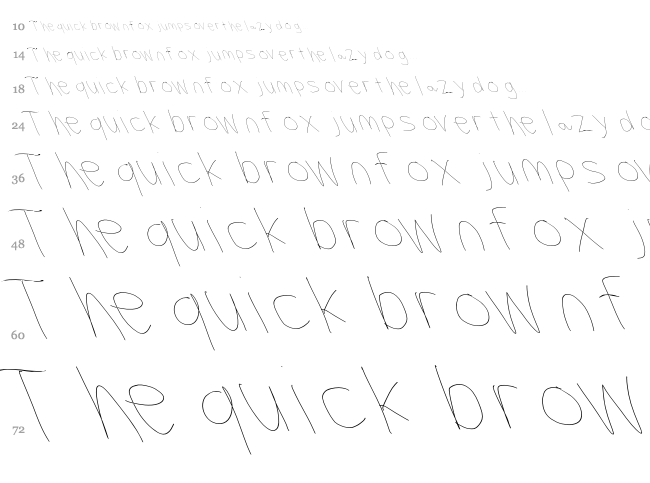 10 The quick brown fox jumps over the lazy dog
14 The quick brown fox jumps over the lazy dog
18 The quick brown fox jumps over the lazy dog
24 The quick brown fox jumps over the lazy do
36 The quick brown fox jumps ov
48 The quick brown fox j
60 The quick brown f
72 The quick brow